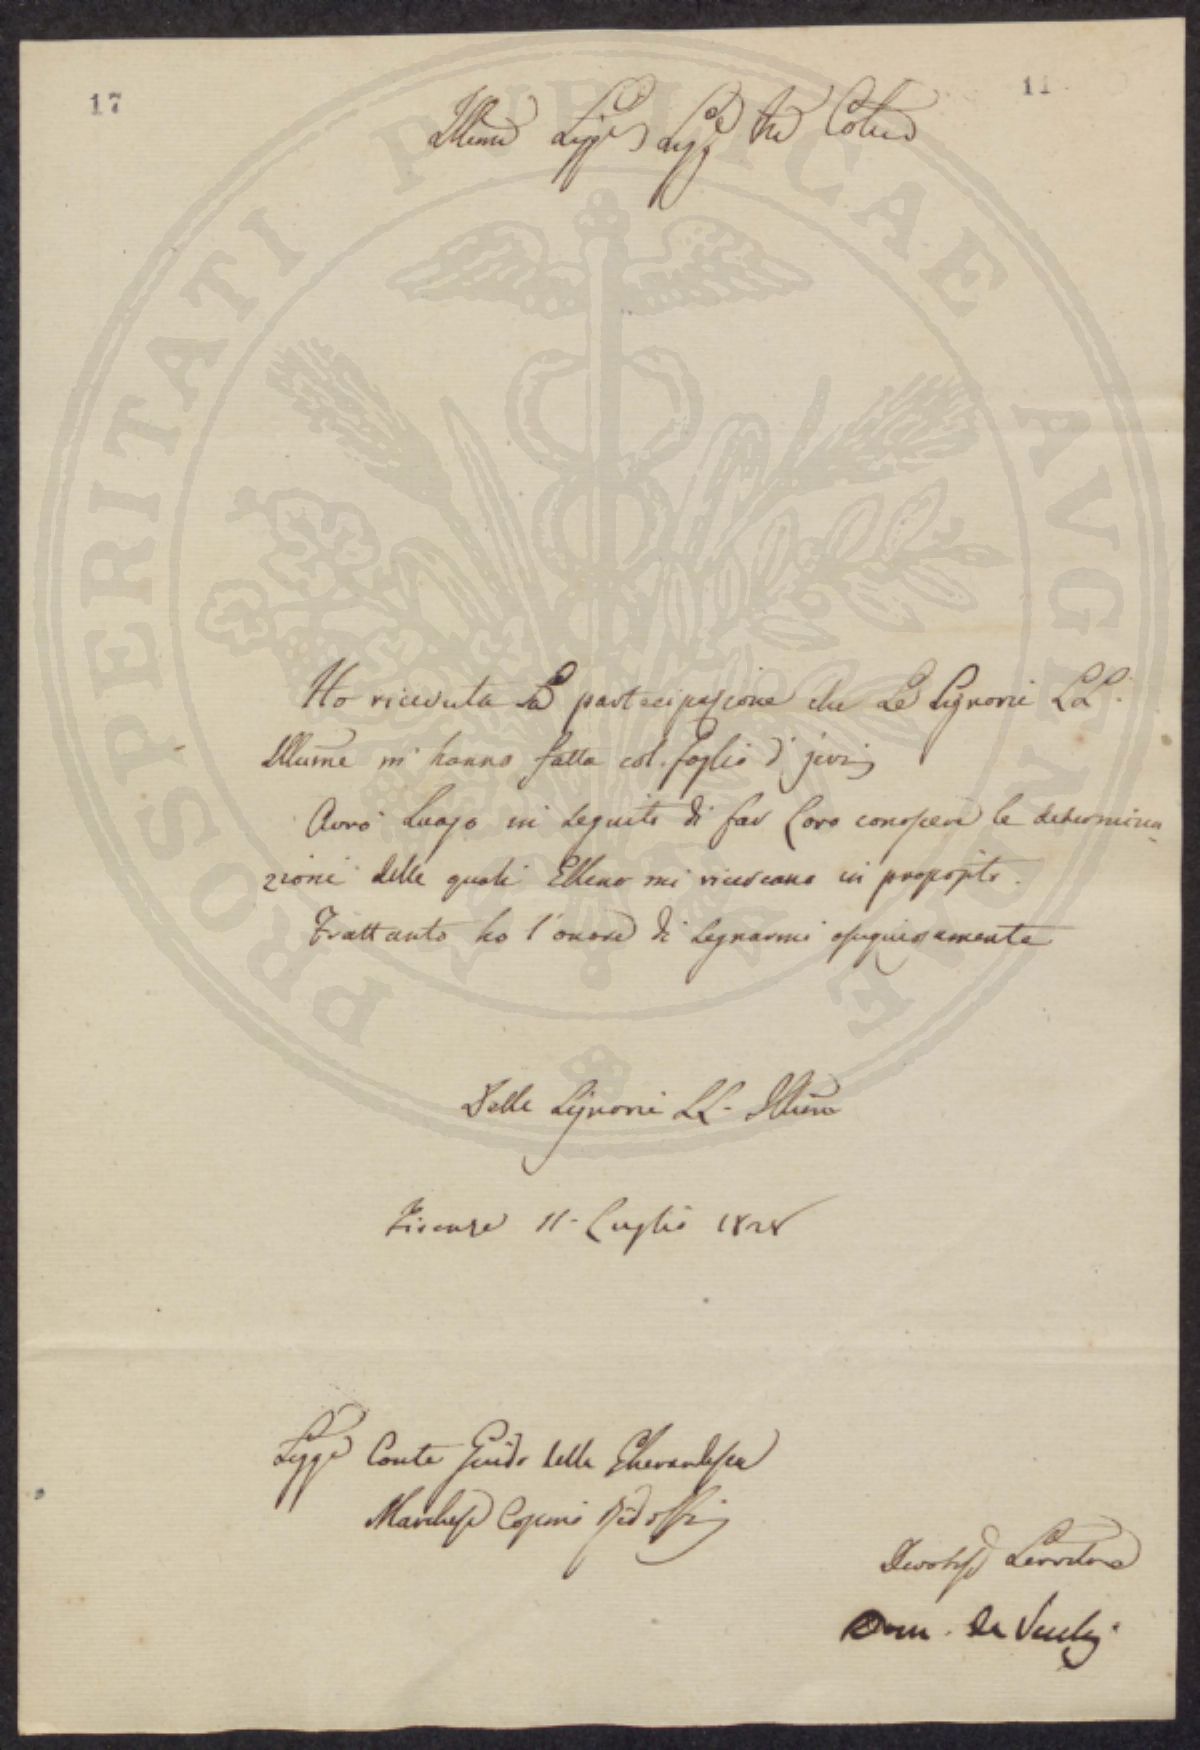 17
11
Illmi Sigg.ri Sigg.ri Pni Colmi
Ho ricevuta la partecipazione che Le Signorie LL.
Illume mi hanno fatta col foglio d'jeri
Avrò luogo in seguito di far Loro conoscere le determina-
zioni delle quali Elleno mi ricercano in proposito.
Frattanto ho l'onore di segnarmi ossequiosamente
Delle Signorie LL. Illume
Firenze 11. Luglio 1828
Sigg.ri Conte Guido della Gherardesca
Marchese Cosimo Ridolfi
Devotiss. Servitore
Dom. de Vecchj
PROSPERITATI PUBLICAE AVGENDAE